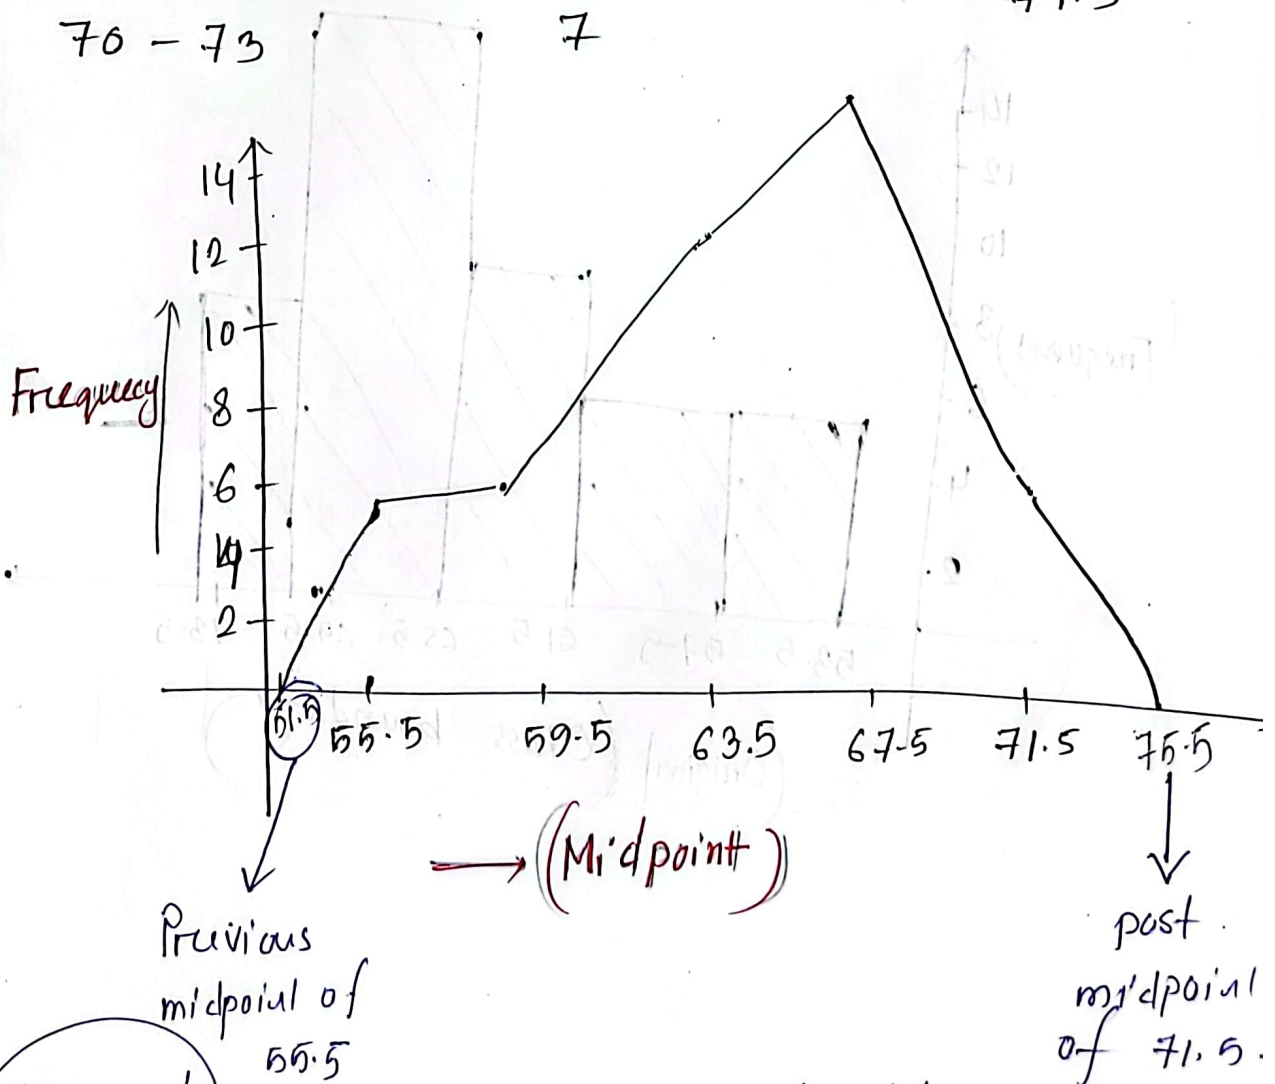 70 - 73 7
14
12
10
Frequecy
8
6
4
2
51.5 55.5 59.5 63.5 67.5 71.5 75.5
(Midpoint)
Previous
midpoint of
55.5
post
midpoint
of 71.5.